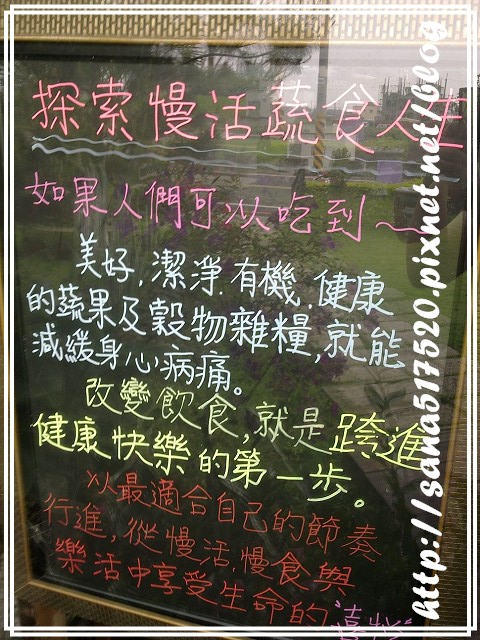 探索慢活蔬食人生
如果人們可以吃到~
美好.潔淨.有機.健康
的蔬果及穀物雜糧,就能
減緩身心病痛。
改變飲食,就是跨進
健康快樂的第一步。
以最適合自己的節奏
行進,從慢活.慢食與
樂活中享受生命的"喜悅"
http://sana517520.pixnet.net/blog